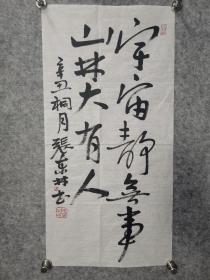 宇宙静無事
山林大有人
辛丑桐月張東林書